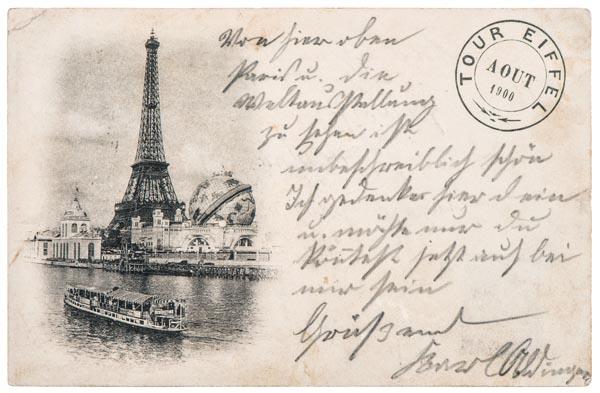 Von hier oben
Paris u. die
Weltausstellung
zu sehen ist
unbeschreiblich schön
Ich gedenke hier dein
u. möchte nur du
könntest jetzt auf bei
mir sein
Grüßend
Karl
TOUR EIFFEL
AOUT
1900